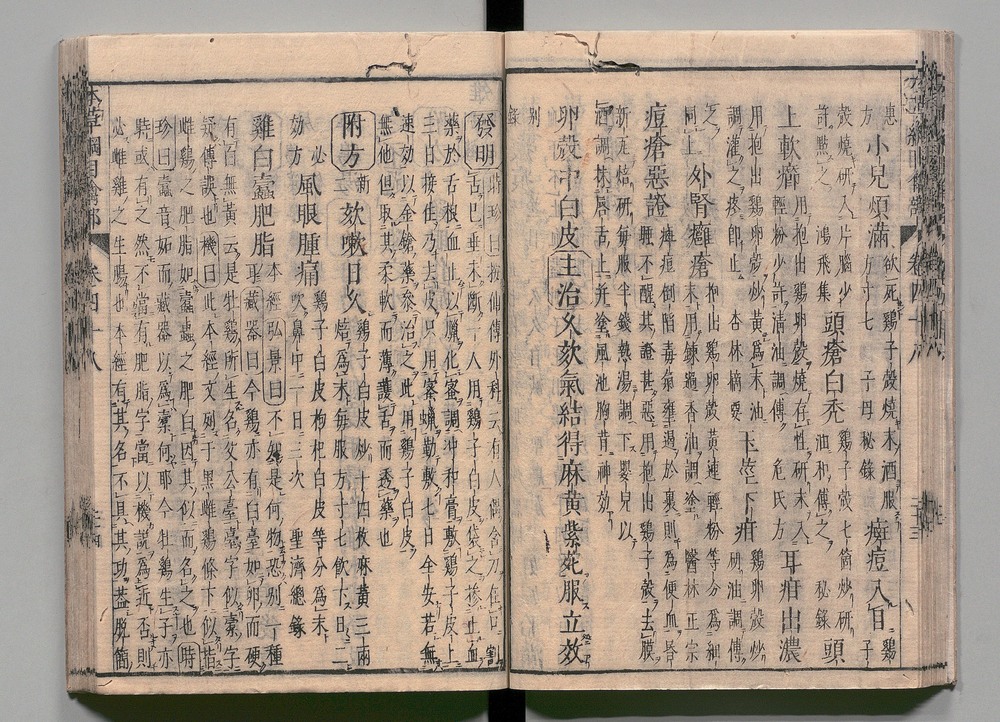 惠
方 小兒煩滿 欲死雞子殼燒末酒服
方寸七 子母秘錄 瘢痘入目 雞子
殼燒研入片腦少
許點之 鴻飛集 頭瘡白禿 雞子殼七箇炒研
油和傅之 秘錄 頭
上軟癤 用抱出雞卵殼燒存性研末入
輕粉少許清油調傅 危氏方 耳疳出濃
用抱出雞卵殼炒黃為末油
調灌之疼即止 杏林摘要 玉莖下疳 雞卵殼炒
研油調傅
之 同上 外腎癰瘡 抱出雞卵殼黃連輕粉等分為細
末用鍊過香油調塗 醫林正宗
痘瘡惡證 斑痘倒黶毒氣壅遏於裏則為便血昏
睡不醒其證甚惡用抱出雞子殼去膜
新瓦焙研每服半錢熱湯調下嬰兒以
酒調抹唇舌上并塗風池胸背神效
卵殼中白皮 主治 久欬氣結得麻黃紫菀服立效
別
錄
發明 時珍曰按仙傳外科云有人偶含刀在口割
舌已垂未斷一人用雞子白皮袋之摻止血
藥於舌根血止以蠟化蜜調沖和膏敷雞子皮上
三日接住乃去皮只用蜜蠟勒敷七日全安若無
速效以金鎗藥參治之此用雞子白皮
無他但取其柔軟而薄護舌而透藥也
附方 新二 欬嗽日久 雞子白皮炒十四枚麻黃三兩
焙為末每服方寸七飲下日二
必
效方 風眼腫痛 雞子白皮枸杞白皮等分為末
吹鼻中一日三次 聖濟總錄
雞白蠹肥脂 本經弘景曰不知是何物恐別一種
耳藏器曰今雞亦有白臺如卵而硬
有白無黃云是牡雞所生名父公臺臺字似橐字
疑傳誤也機曰此本經文列于黑雌雞條下似指
雌雞之肥脂如蠹蟲之肥白因其似而名之也時
珍曰蠹音妬而藏器以為橐何耶今牡雞生子亦
時或有之然不當有肥脂字當以機說為近否則
必雌雞之生腸也本經有其名不具其功蓋脫簡
本草綱目禽部 卷四十八